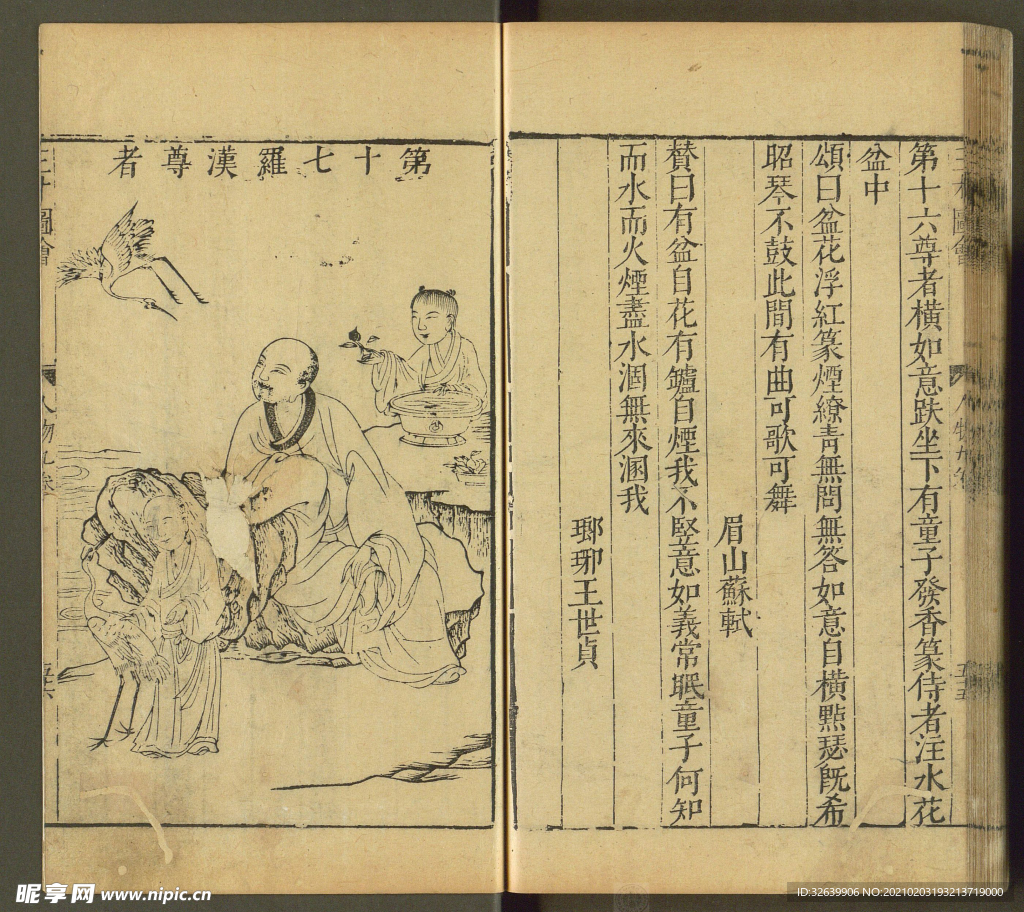 三才圖會
人物九卷
五五
第十六尊者橫如意趺坐下有童子發香篆侍者注水花
盆中
頌曰盆花浮紅篆煙繚青無問無答如意自橫點瑟旣希
昭琴不鼓此間有曲可歌可舞
眉山蘇軾
贊曰有盆自花有鑪自煙我不竪意如義常眠童子何知
而水而火煙盡水涸無來溷我
瑯琊王世貞
第十七羅漢尊者
三才圖會
人物九卷
昵享网 www.nipic.cn
ID:32639906 NO:20210203193213719000